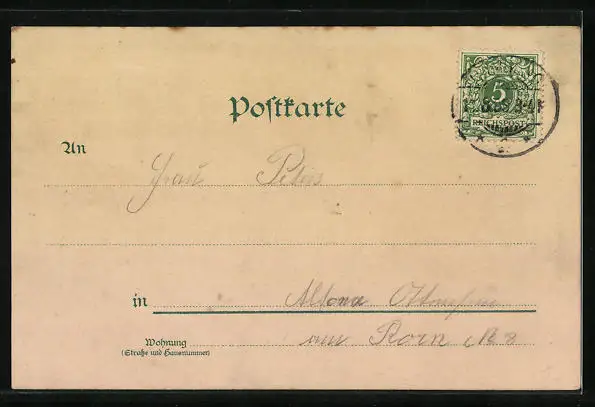 Postkarte
5
REICHSPOST
An
Frau Peters
in Altona Ottensen
Wohnung am Born №
(Straße und Hausnummer)